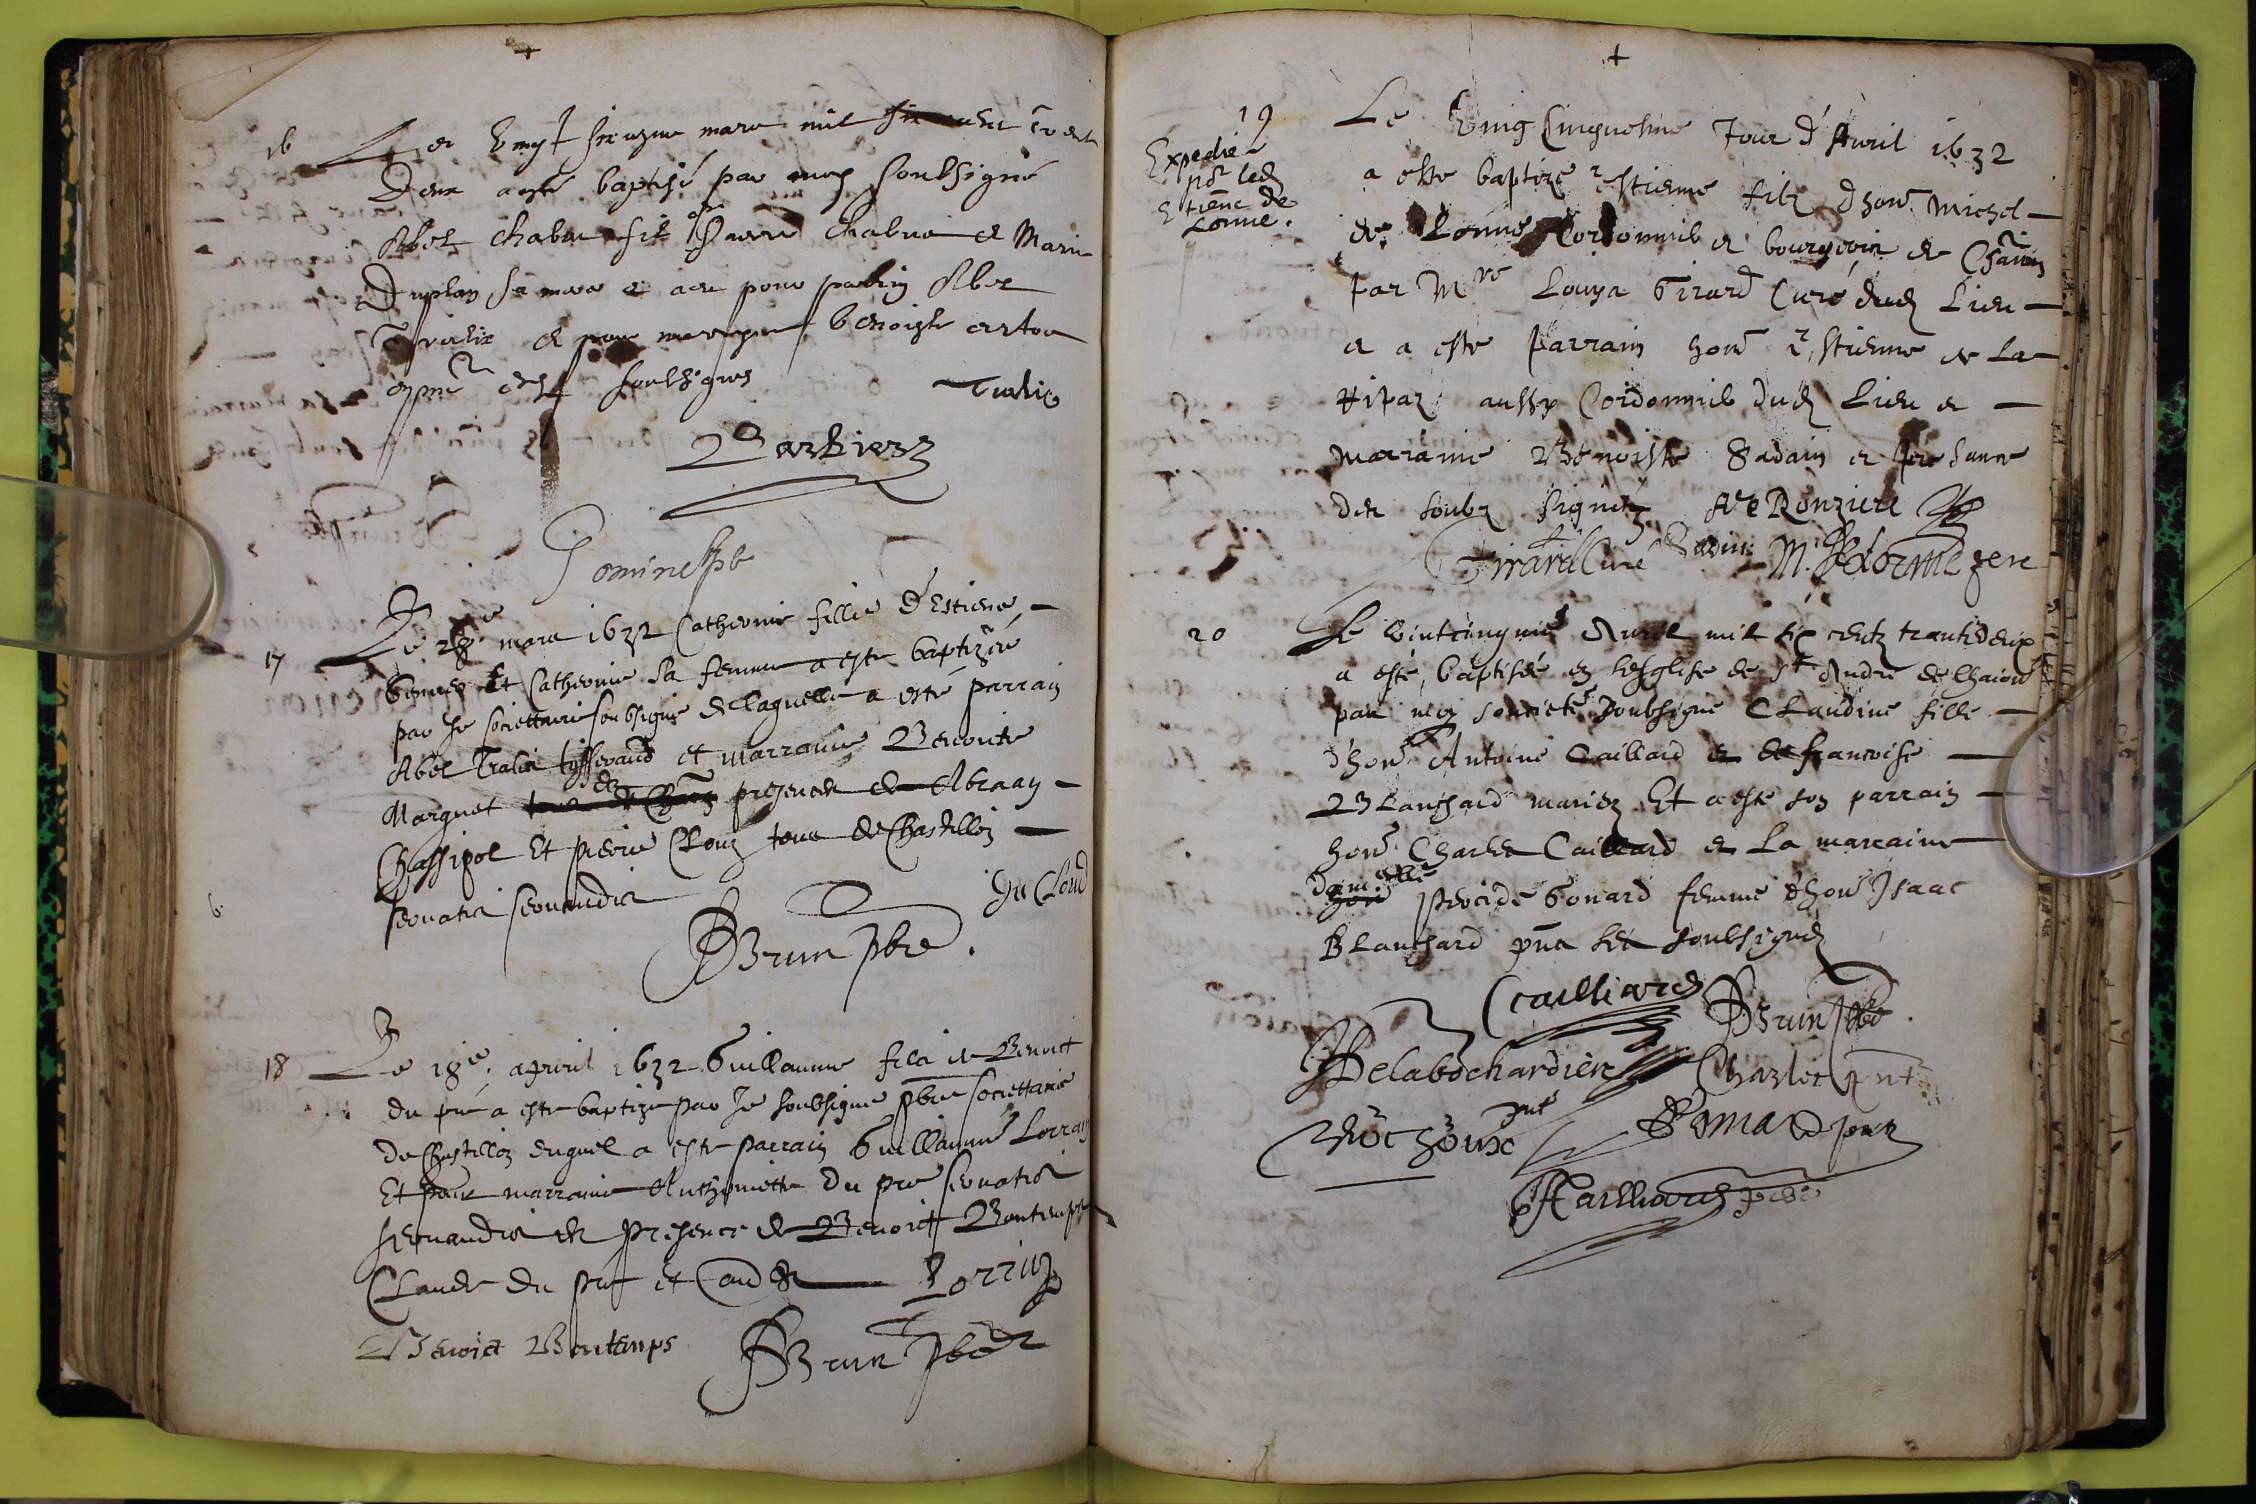 +
16
Le vingt sixiesme mars mil six cens trent
deux a esté baptisé par moy soubsigné
Abel chabue fil Pierre chabue et Marie
Duplan sa mere et a eu pour parrin Abel
Tralix et pour marrayne benoiste
soubsignes
Tralix
Gomine pbr
17
Le 28e mars 1632 Catherine fillie d'Estiene
et Catherine sa femme a este baptizéé
par Je societtaire soubsigné de laquelle a esté parrain
Abel Tralix tisserand et marraine Benoite
Marguet presence de Abraan
Chassipol Et pierre Clouz tous de Chastillon
servatis servandis
Du Cloud
Brun pbre.
18
Le 18e. apvril 1632 Guillaume fils de Benoict
du pré a este baptize par Je soubsigne pbre societtaire
de Chastillon duquel a este parrain Guillaume Lorran
Et pour marraine Anthoniette du pre servatis
servandis en presence de Benoict Bontemps
Claude du pré et
Lorrin
Benoict Bontemps
Brun pbre
+
19
Expedié
pr led
Etiene de
Lorme.
Le Vingt Cinquesme Jour d'Avril 1632
a este baptize estienne filz d'hon. Michel
de Lorme Cordonnier et bourgeois de
par Mre Louys Girard Curé dud lieu
et a este parrain hon estienne de la
aussy Cordonnier dud lieu et
marraine Benoiste Sadain et presance
des soubz signez Ronziere
Girard Curé Sadin M. Delorme pere
20
Le vintcinqme Avril mil six centz trante deux
a esté baptisée en leglise de st Andre de
par moy societe soubsigne Claudine fille
d'hon Antoine Caillard et de francoise
Blanchard mariez Et a este son parrain
hon Charle Caillard et la marraine
damelle
hon Procide Gonard femme d'hon Isaac
Blanchard pns les soubsignez
Cailliard Brun pbr.
Delabochardiere Charlet pnt
Rochoux pnt Gonard pnt
Cailliard